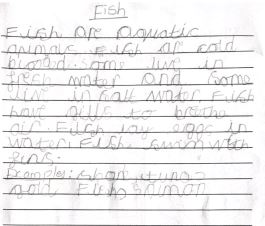 Fish
Fish are aquatic
animals. Fish ar cold
blooded. some live in
fresh water and some
live in salt water Fish
have gills to breathe
air. Fish lay eggs in
water. Fish swim with
fins.
Examples: shark, tuna,
gold Fish, salmon